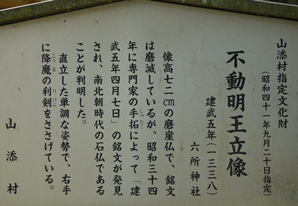 山添村指定文化財
(昭和四十一年九月二十日指定)
不動明王立像
建武五年(一三三八)
六所神社
像高七二cmの磨崖仏で、銘文
は磨滅しているが、昭和三十四
年に専門家の手拓によって「建
武五年四月七日」の銘文が発見
され、南北朝時代の石仏である
ことが判明した。
直立した単調な姿勢で、右手
に降魔の利剣をささげている。
山添村